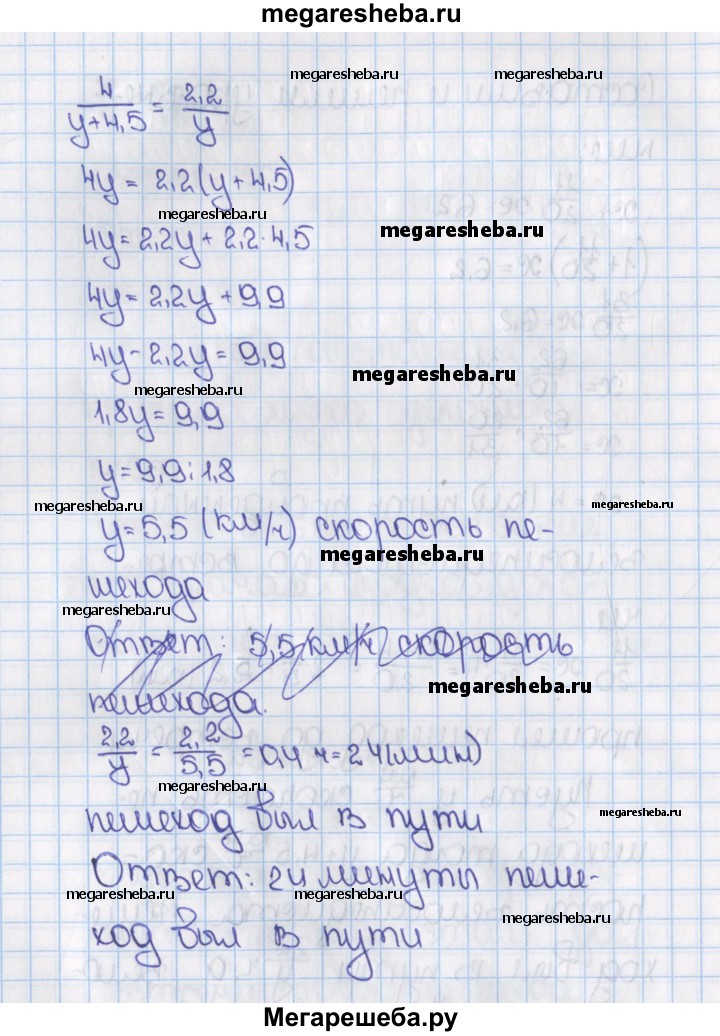 megaresheba.ru
megaresheba.ru megaresheba.ru
4/(y+4,5) = 2,2/y
4y = 2,2(y+4,5)
megaresheba.ru
megaresheba.ru
4y = 2,2y + 2,2·4,5
4y = 2,2y + 9,9
4y - 2,2y = 9,9
megaresheba.ru
megaresheba.ru
1,8y = 9,9
y = 9,9:1,8
megaresheba.ru megaresheba.ru
y = 5,5 (км/ч) скорость пе-
megaresheba.ru
шехода
megaresheba.ru
Ответ: 5,5 км/ч скорость
megaresheba.ru
пешехода.
2,2/y = 2,2/5,5 = 0,4 ч = 24(мин)
megaresheba.ru
пешеход был в пути
megaresheba.ru
Ответ: 24 минуты пеше-
megaresheba.ru megaresheba.ru
megaresheba.ru
ход был в пути
Мегарешеба.ру